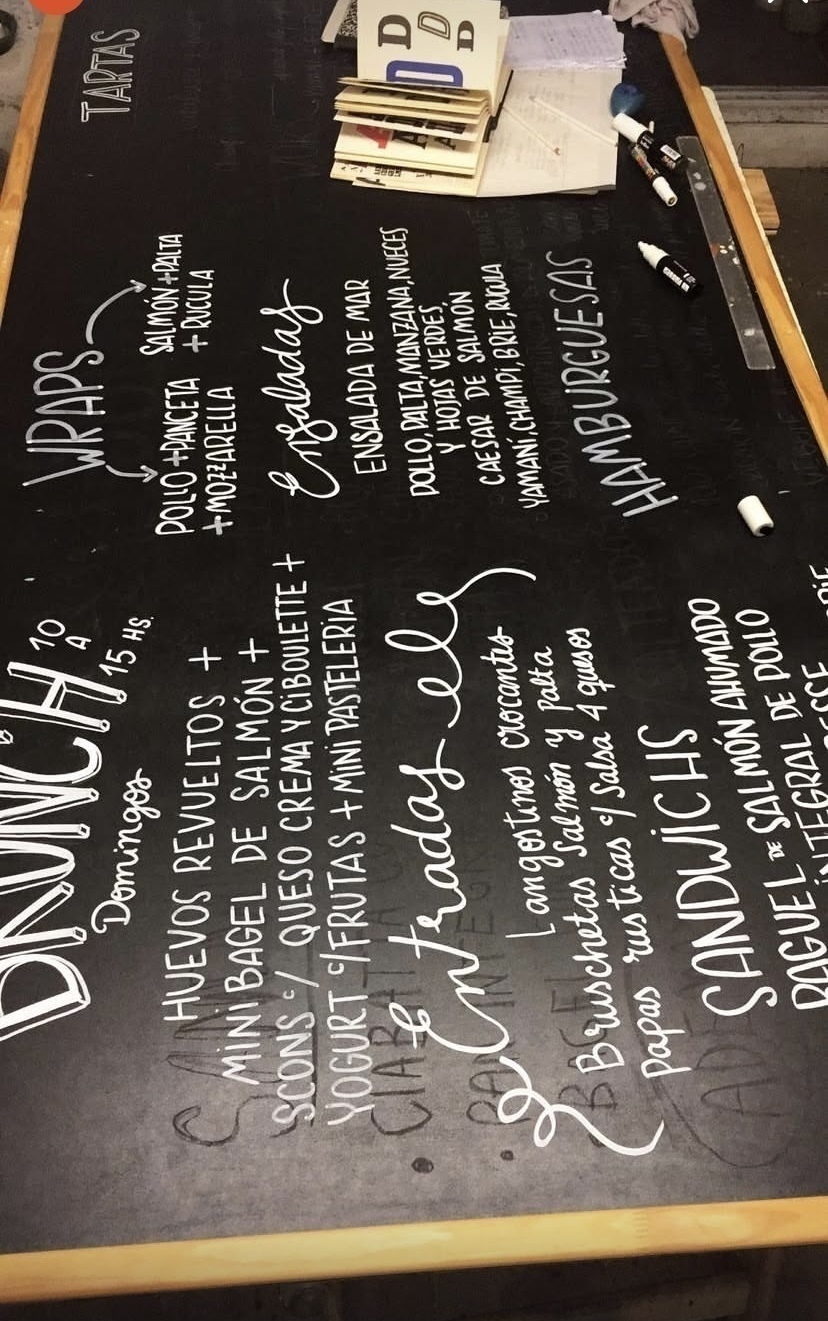 BRUNCH 10 A 15 HS.
Domingos
HUEVOS REVUELTOS +
MINI BAGEL DE SALMÓN +
SCONS c/ QUESO CREMA Y CIBOULETTE +
YOGURT c/FRUTAS + MINI PASTELERIA
Entradas
Langostinos crocantes
Bruschetas Salmón y Palta
Papas rusticas c/ Salsa 4 quesos
SANDWICHS
BAGUEL DE SALMÓN AHUMADO
INTEGRAL DE POLLO
WRAPS
POLLO + PANCETA
+ MOZZARELLA
SALMÓN + PALTA
+ RUCULA
Ensaladas
ENSALADA DE MAR
POLLO, PALTA, MANZANA, NUECES
Y HOJAS VERDES,
CAESAR DE SALMÓN
YAMANÍ, CHAMPI, BRIE, RUCULA
HAMBURGUESAS
TARTAS
D D D D